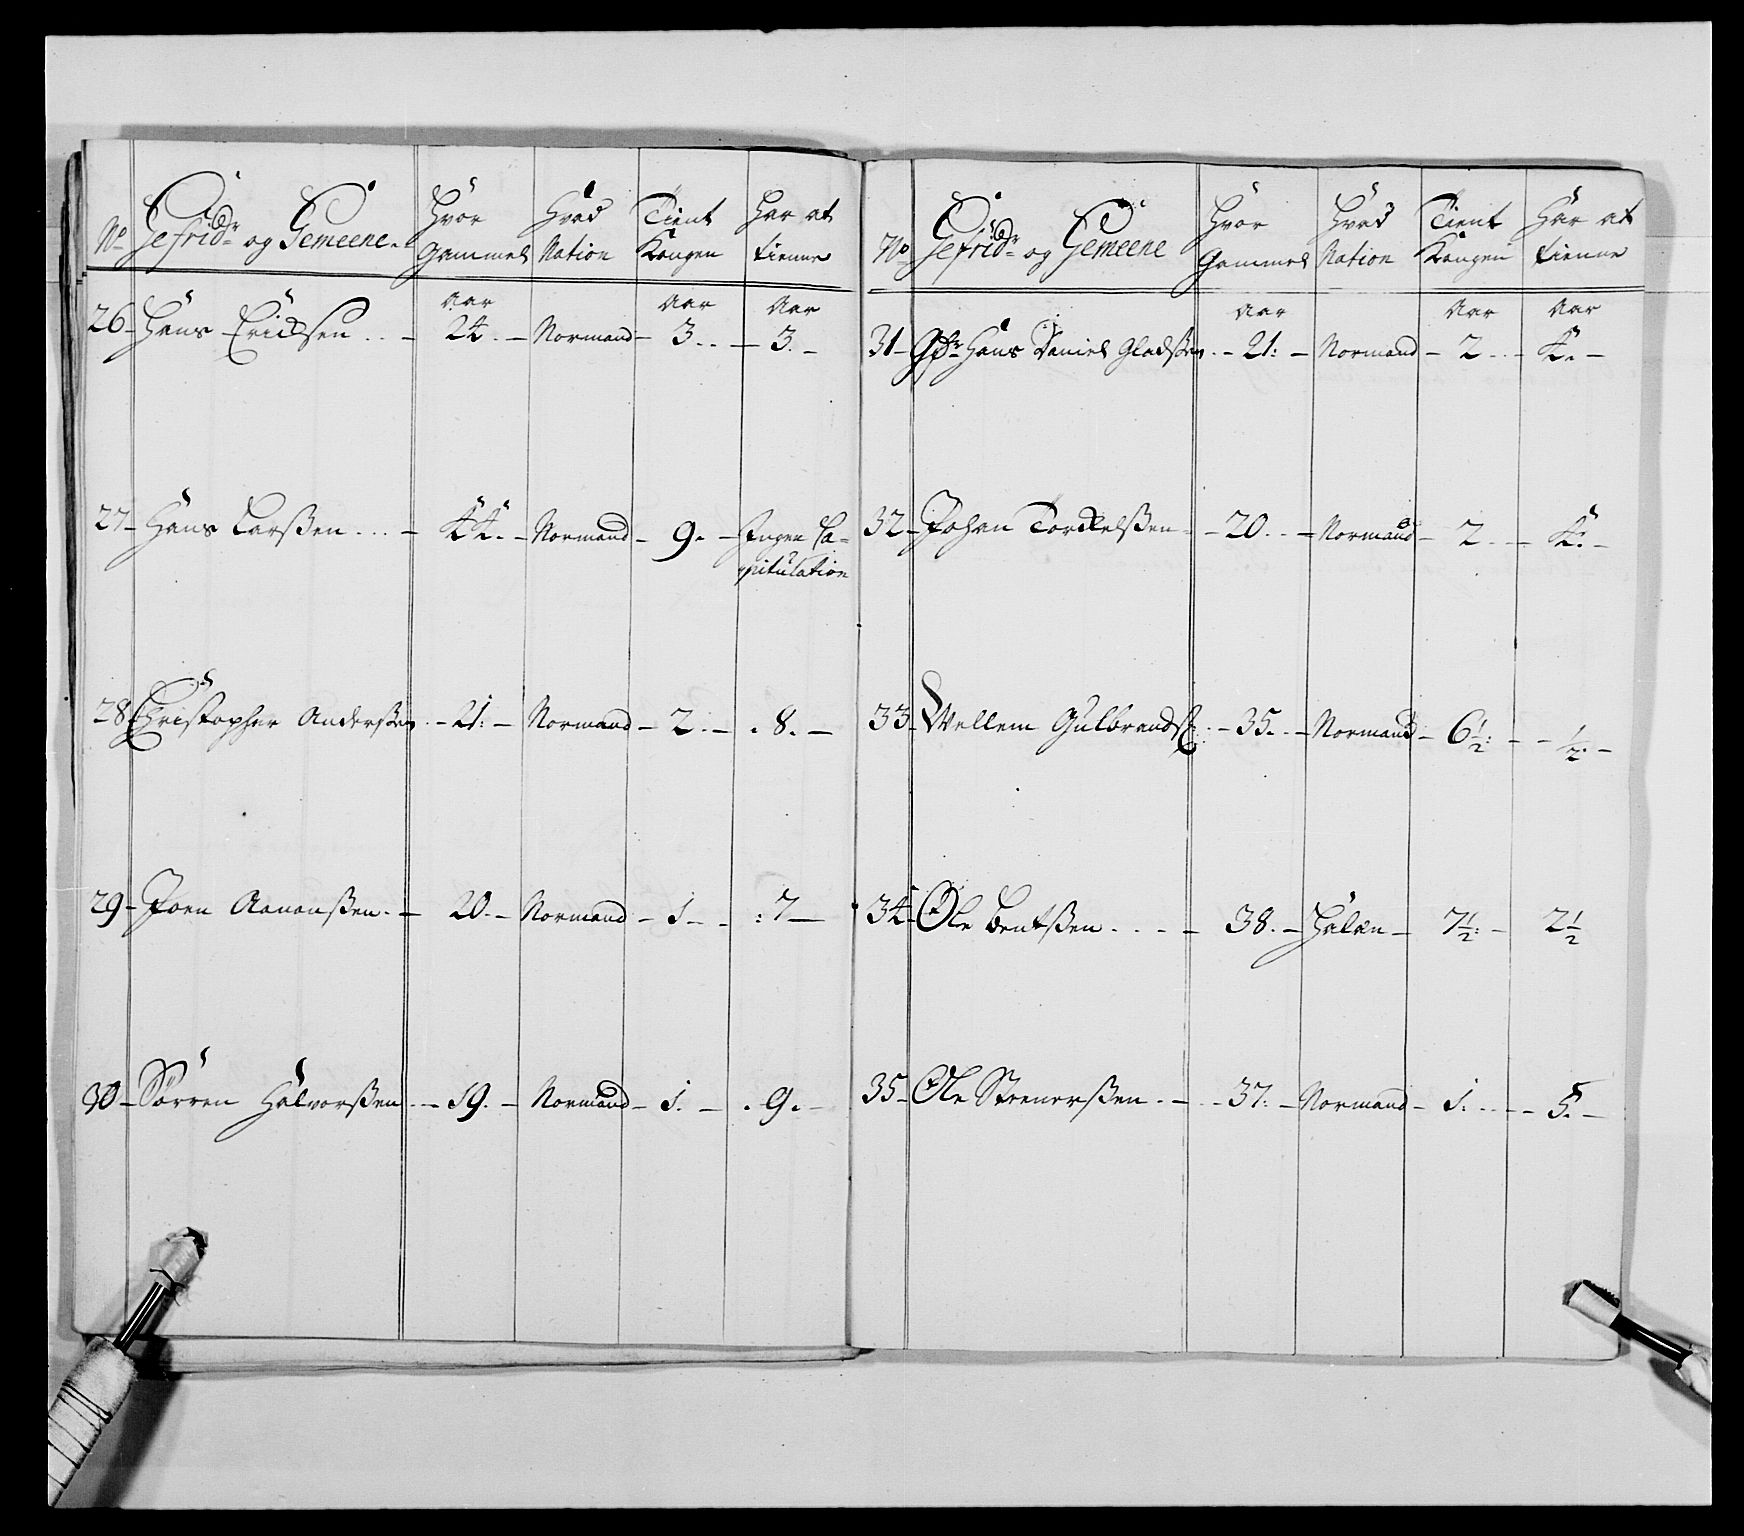 No Gefrid:r og Gemeene. Hvor Gammel Hvad Nation Tient Kongen Har at tienne
Aar Aar Aar
26 Hans Ericksen .. 24. Normand 3.. 3.
27 Hans Larßen ... 44. Normand 9. Ingen Ca-
pitulation
28 Christopher Anderßen . 21: Normand 2.. 8.
29 Joen Aanonßen. 20. Normand 1 7
30 Sörren Halvorßen .. 19. Normand 1. 9.
No Gefrid:r og Gemeene Hvor Gammel Hvad Nation Tient Kongen Har at tienne
Aar Aar Aar
31 Gfr: Hans Daniel Gladßen .. 21: Normand 2.. 4.
32 Johan Torckelßen 20.. Normand 2.. 4.
33 Wellem Gulbrands .. 35.. Normand 6½: ½.
34 Ole Bentßen .... 38. 7½: 2½
35 Ole Steenerßen .. 37: Normand 1:.. 5.